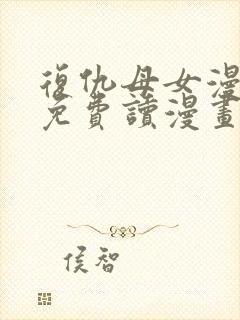 復仇母女漫
免費讀漫畫
侯智